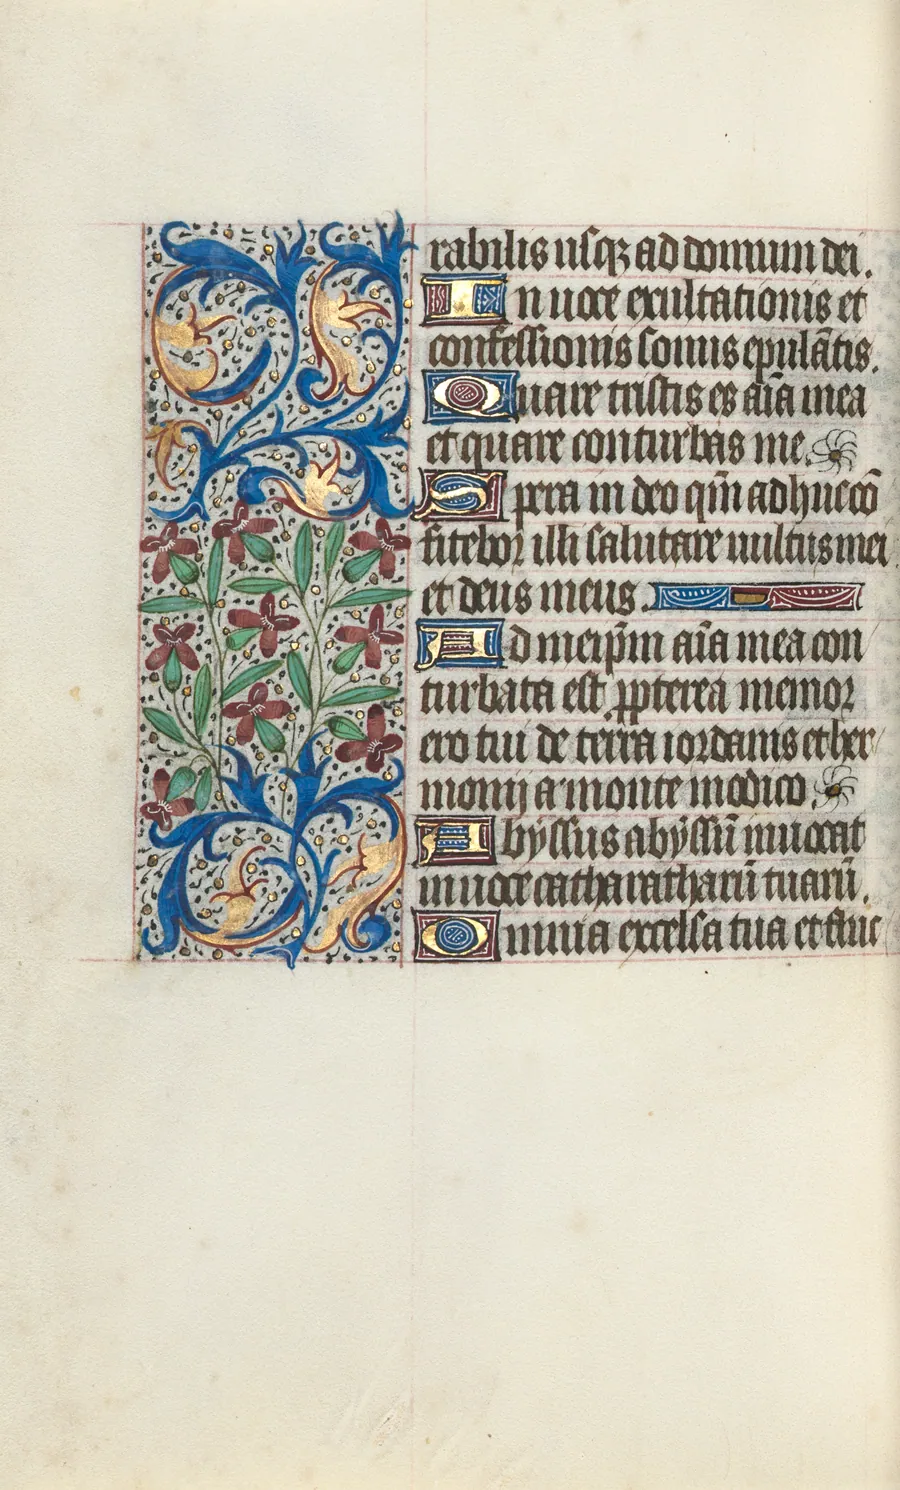 rabilis usqꝫ ad domum dei.
In uoce exultationis et
confessionis sonus epulātis.
Quare tristis es aīa mea
et quare conturbas me.
Spera in deo qm̄ adhuc cō
fitebor illi salutare uultus mei
et deus meus.
Ad meip̄m aīa mea con
turbata est ꝓpterea memor
ero tui de terra iordanis et her
monij a monte modico.
Abyssus abyssū inuocat
in uoce catharatharū tuarū.
Omnia excelsa tua et fluc